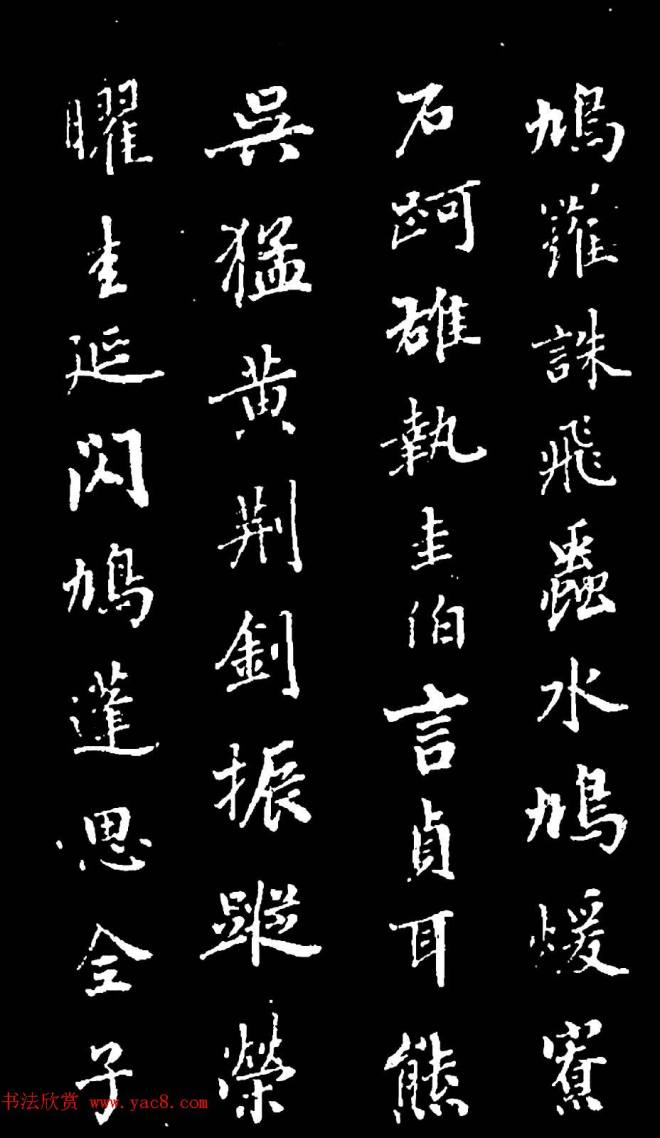 鳩羅誅飛蟲水鳩煖寮
石訶雄執圭伯言貞耳熊
吳猛黄荆釗振蹤榮
曜圭延閃鳩蓬思全子
书法欣赏 www.yac8.com